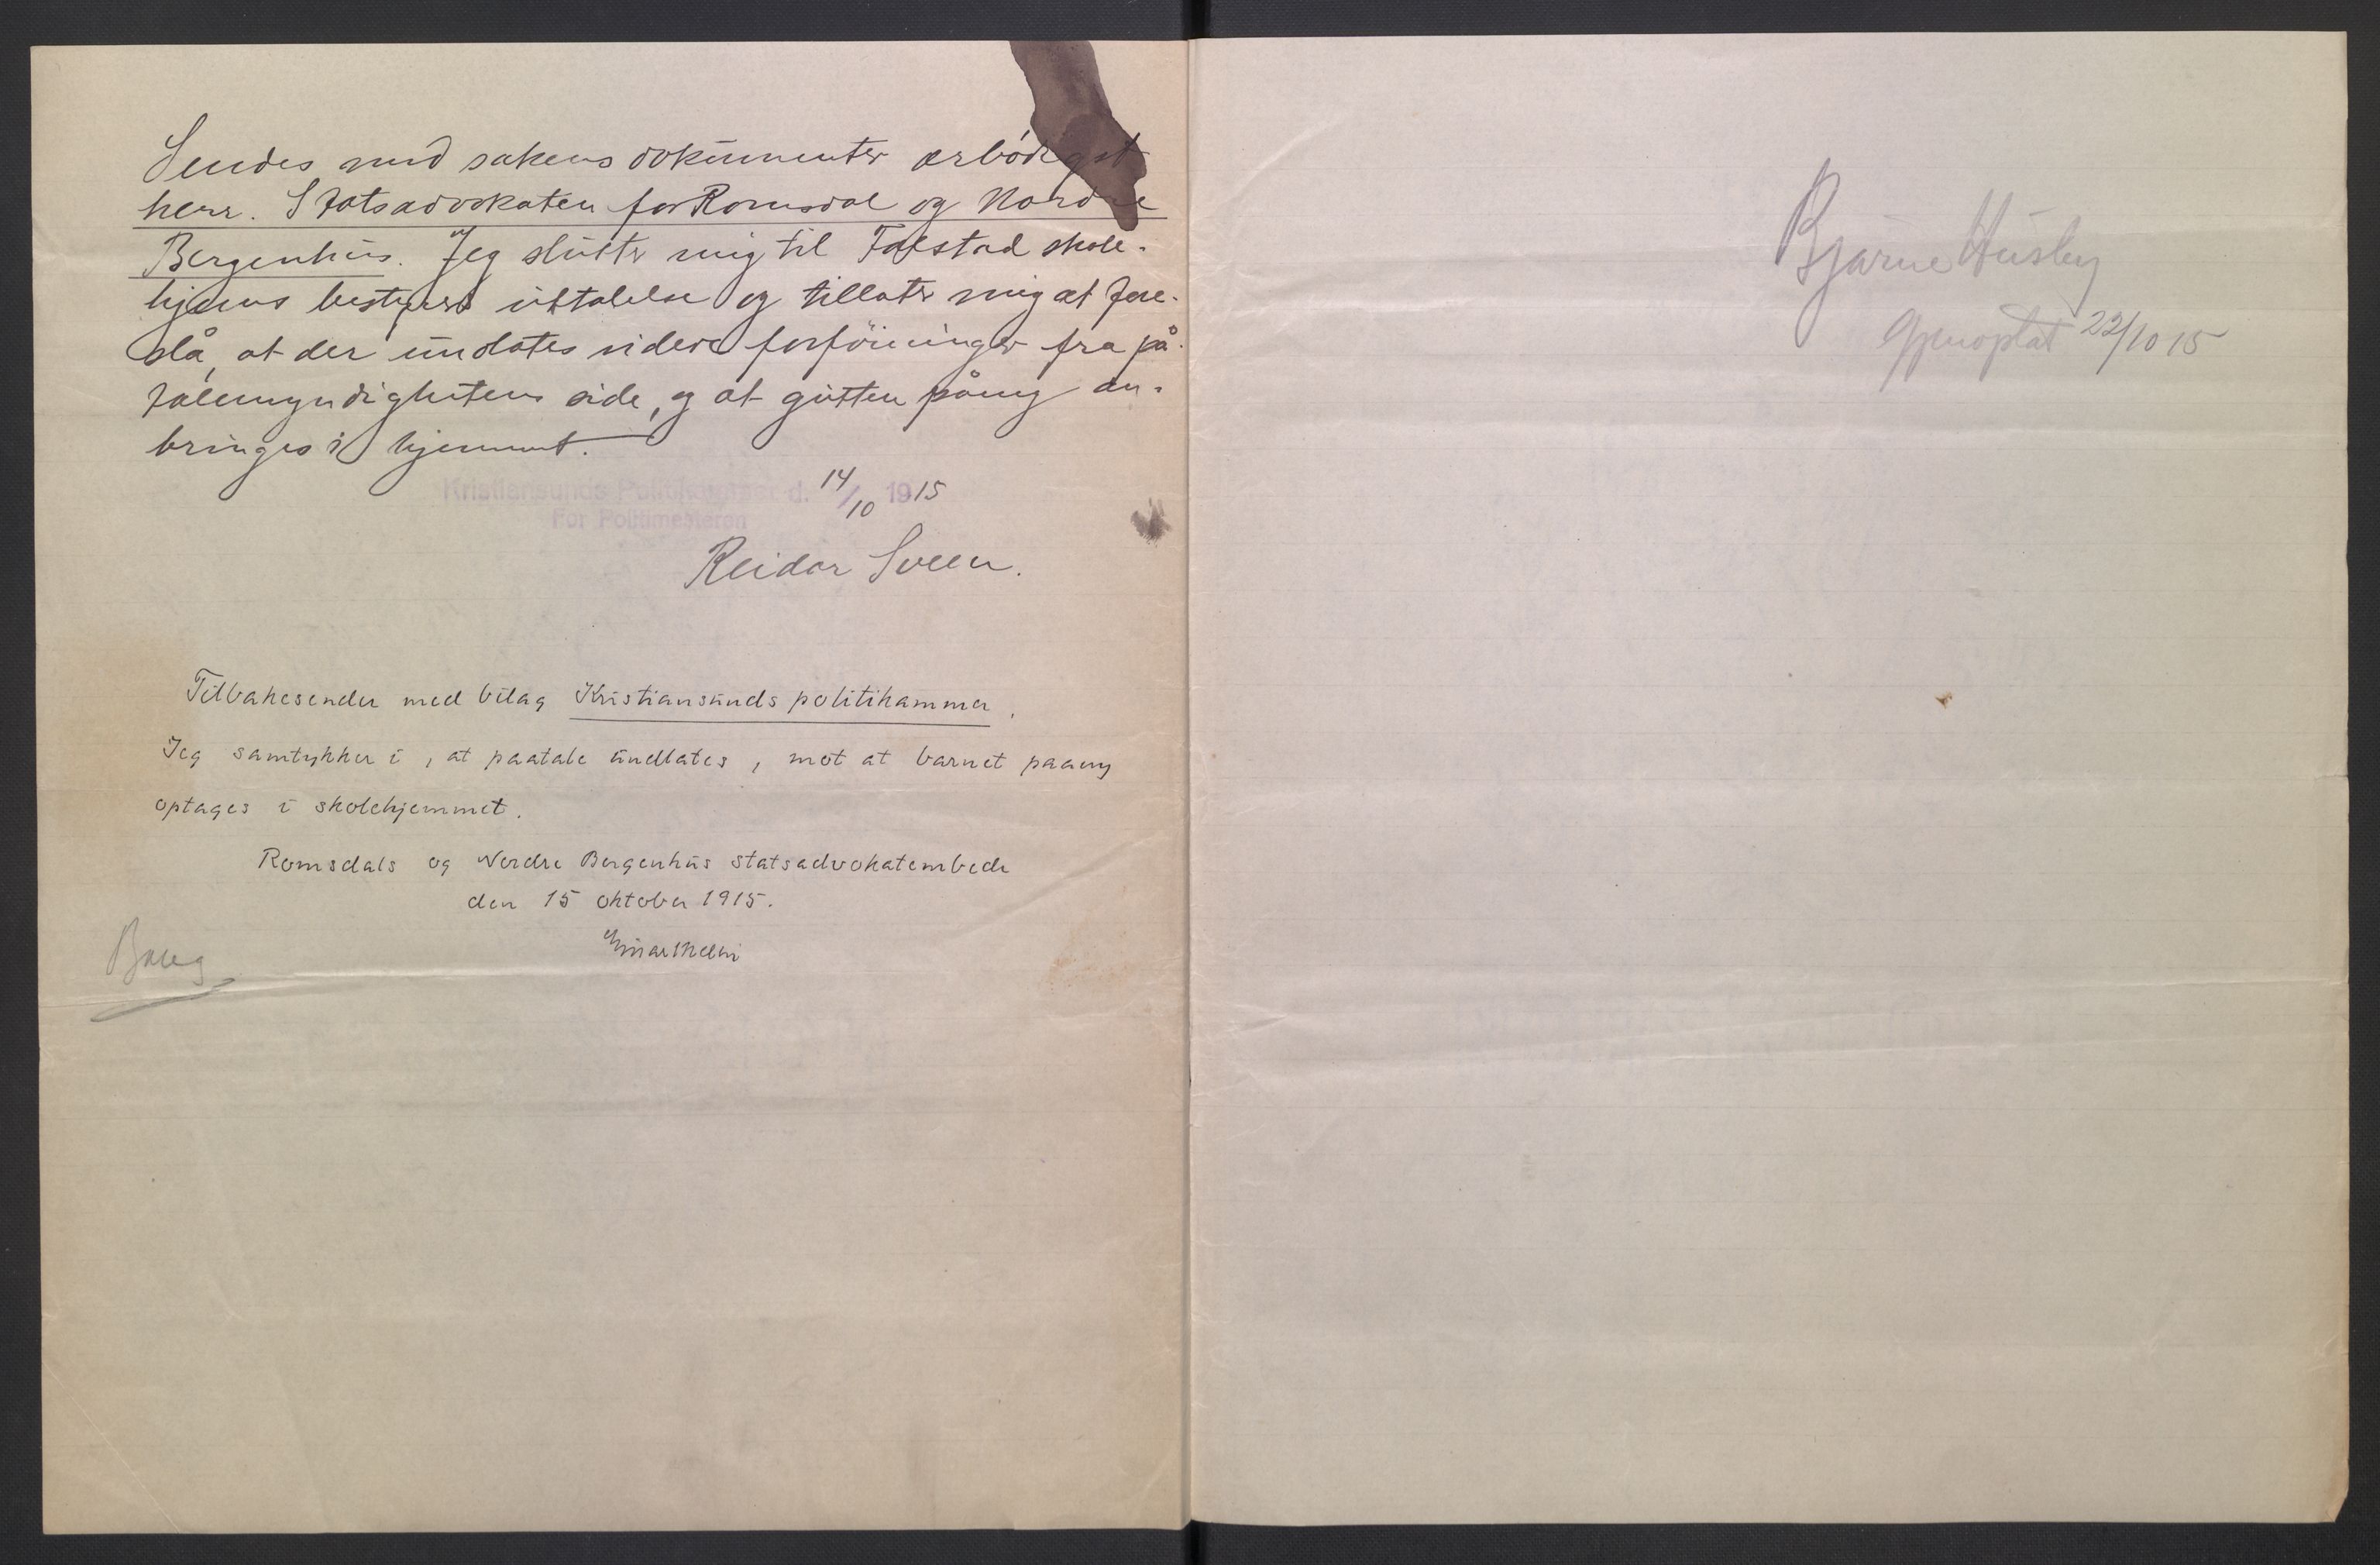 Sendes med sakens dokumenter ærbödigst
herr. Statsadvokaten for Romsdal og Nordre
Bergenhus. Jeg slutter mig til Falstad skole-
hjems bestyrers uttalelse og tillater mig at fore-
slå, at der undlates videre forföininger fra på-
talemyndighetens side, og at gutten påny an-
bringes i hjemmet.
Kristiansunds Politikammer d. 14/10 1915
For Politimesteren
Reidar Sveen.
Tilbakesendes med bilag Kristiansunds politikammer.
Jeg samtykker i, at paatale undlates, mot at barnet paany
optages i skolehjemmet.
Romsdals og Nordre Bergenhus statsadvokatembede
den 15 oktober 1915.
Bjarne Husby
Gjenoptat 22/10 15